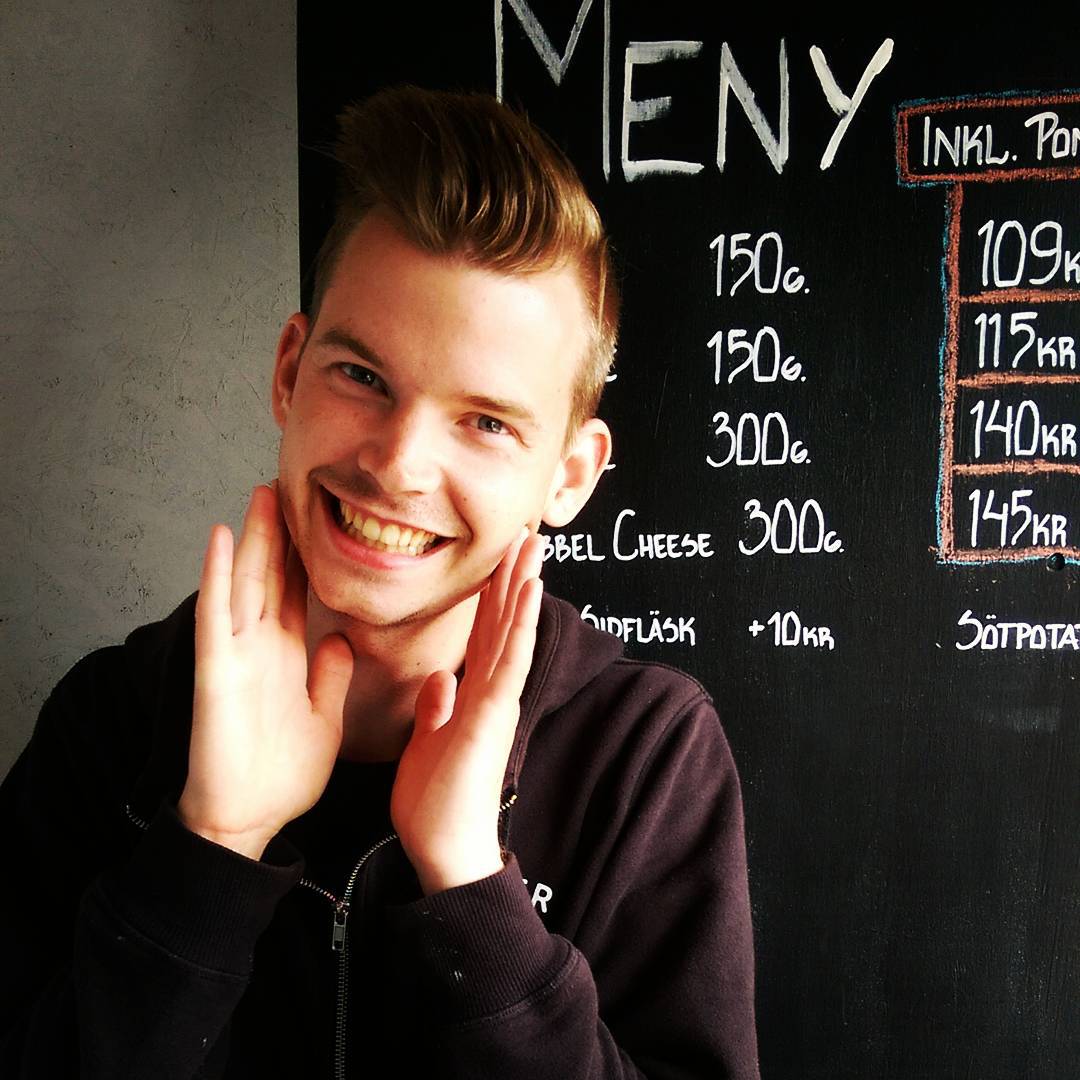 MENY
INKL. POM
150G. 109K
150G. 115KR
300G. 140KR
BBEL CHEESE 300G. 145KR
SIDFLÄSK +10KR SÖTPOTAT
ER